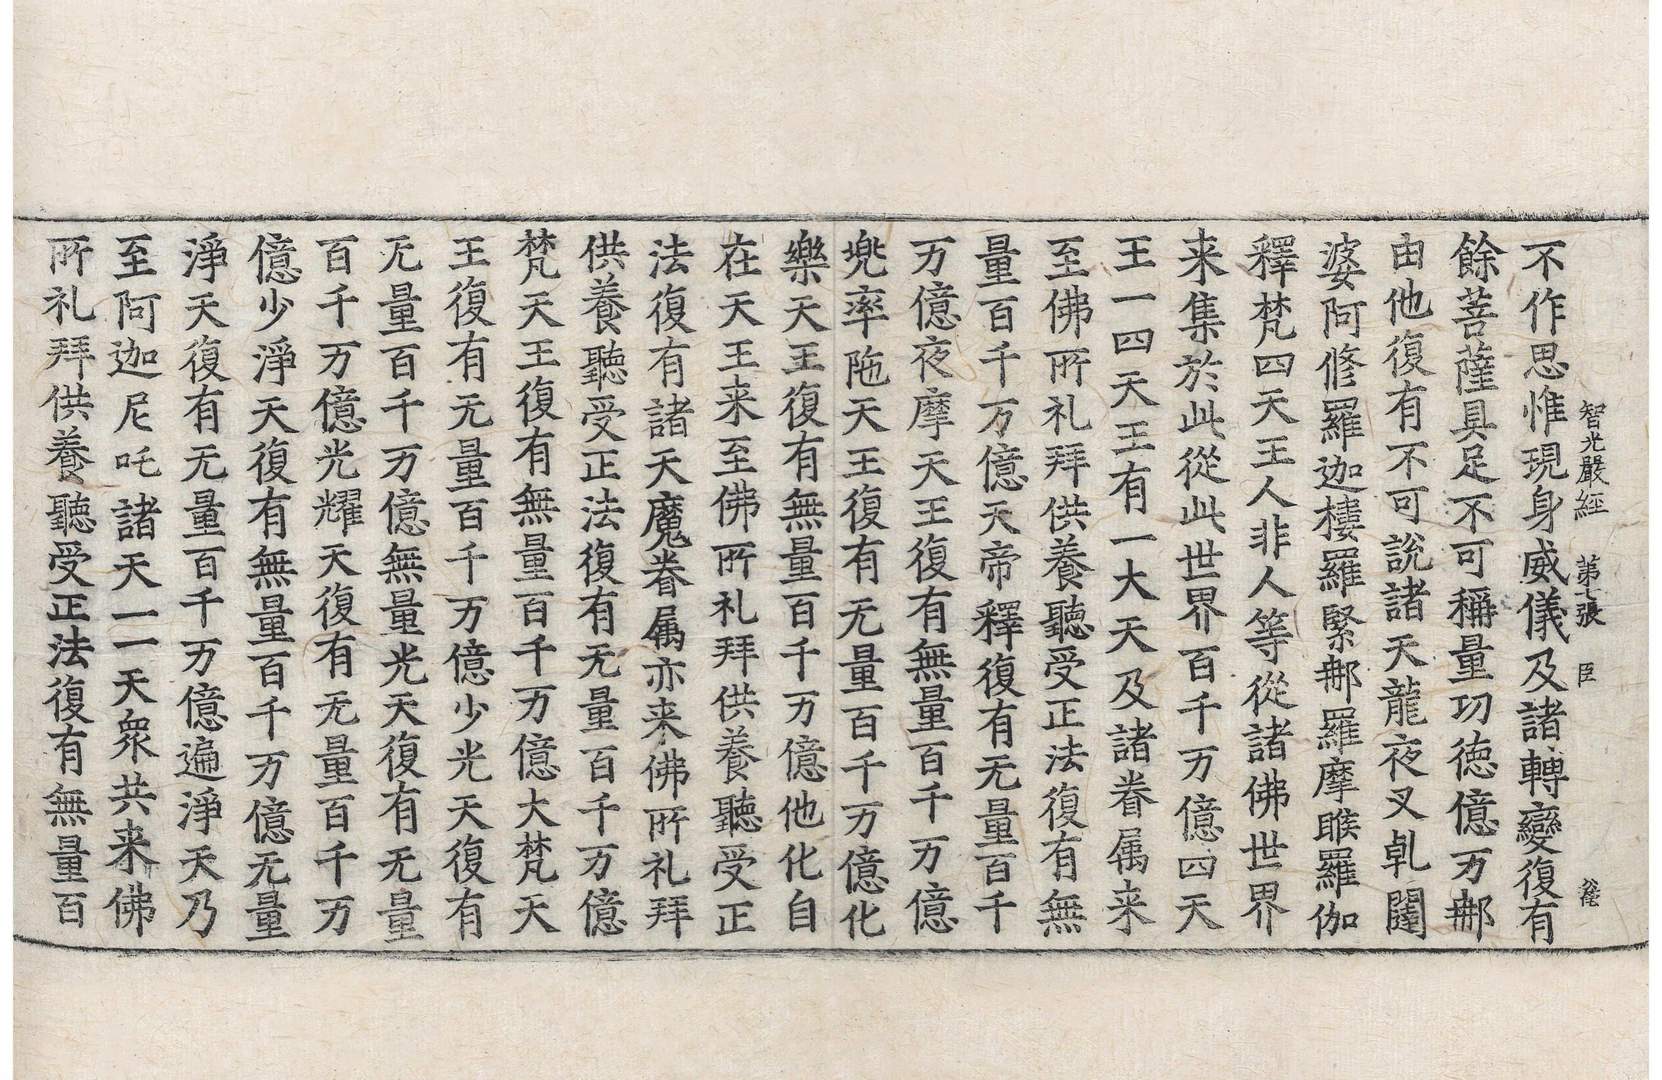 智光嚴經 第七張 臣
不作思惟現身威儀及諸轉變復有
餘菩薩具足不可稱量功德億万郍
由他復有不可說諸天龍夜叉乹闥
婆阿修羅迦樓羅緊郍羅摩睺羅伽
釋梵四天王人非人等從諸佛世界
来集於此從此世界百千万億四天
王一四天王有一大天及諸眷属来
至佛所礼拜供養聽受正法復有無
量百千万億天帝釋復有无量百千
万億夜摩天王復有無量百千万億
兜率陁天王復有无量百千万億化
樂天王復有無量百千万億他化自
在天王来至佛所礼拜供養聽受正
法復有諸天魔眷属亦来佛所礼拜
供養聽受正法復有无量百千万億
梵天王復有無量百千万億大梵天
王復有无量百千万億少光天復有
无量百千万億無量光天復有无量
百千万億光耀天復有无量百千万
億少淨天復有無量百千万億无量
淨天復有无量百千万億遍淨天乃
至阿迦尼吒諸天一一天衆共来佛
所礼拜供養聽受正法復有無量百